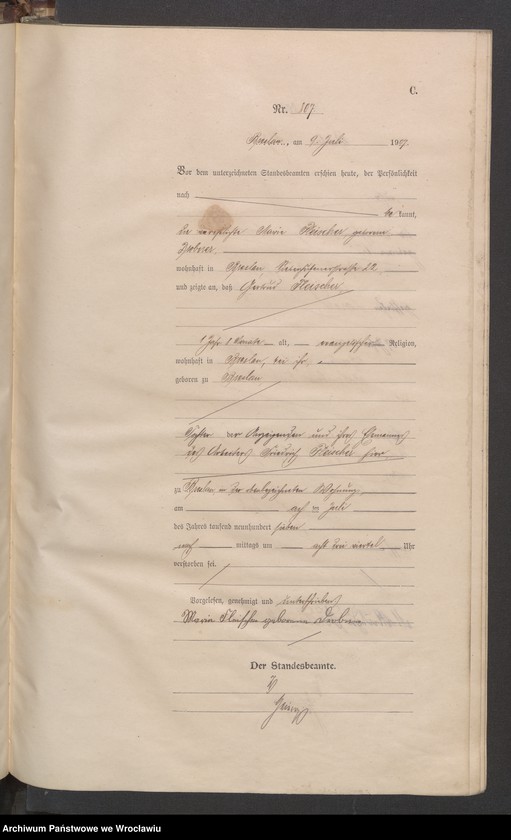 C.
Nr. 107
Breslau, am 9. Juli 1907.
Vor dem unterzeichneten Standesbeamten erschien heute, der Persönlichkeit
nach
kannt,
die verehelichte Maria Fleischer geborene
wohnhaft in Breslau 22
und zeigte an, daß Gertrud Fleischer
1 Jahr Monate alt, evangelischer Religion,
wohnhaft in Breslau, bei ihr
geboren zu Breslau
Tochter der Anzeigenden und ihres Ehemannes
des Arbeiters Friedrich Fleischer hier
zu Breslau, in der vorbezeichneten Wohnung
am acht ten Juli
des Jahres tausend neunhundert sieben
nach mittags um acht drei viertel Uhr
verstorben sei.
Vorgelesen, genehmigt und unterschrieben
Maria Fleischer geborene
Der Standesbeamte.
Archiwum Państwowe we Wrocławiu